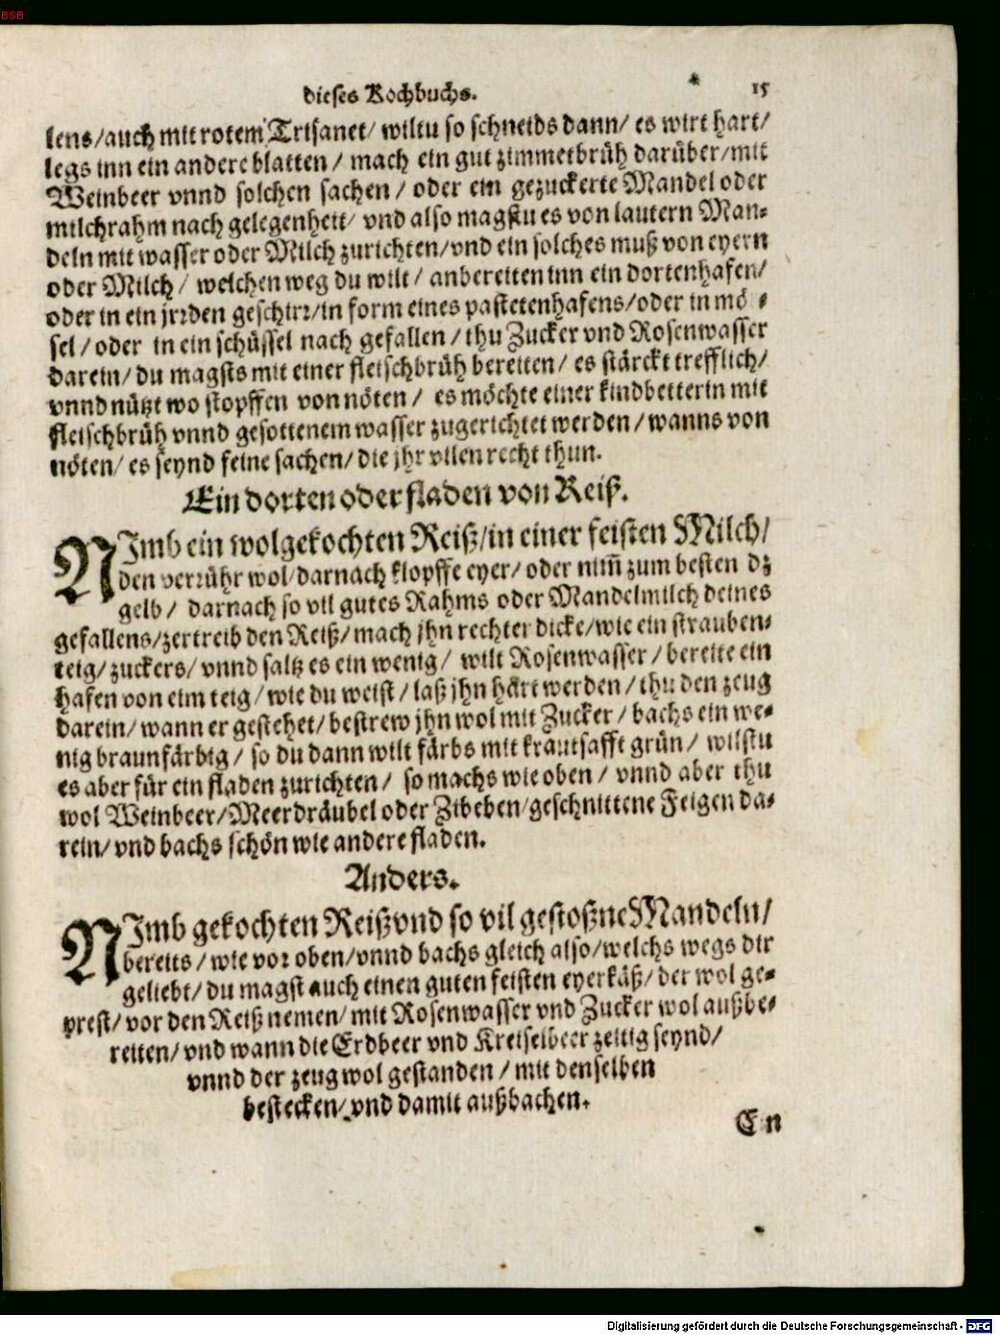 BSB
dieses Kochbuchs. 15
lens/auch mit rotem Trisanet/ wiltu so schneids dann/ es wirt hart/
legs inn ein andere blatten / mach ein gut zimmetbrüh darüber/mit
Weinbeer vnnd solchen sachen / oder ein gezuckerte Mandel oder
milchrahm nach gelegenheit/ vnd also magstu es von lautern Man⸗
deln mit wasser oder Milch zurichten/vnd ein solches muß von eyern
oder Milch / welchen weg du wilt / anbereiten inn ein dortenhafen/
oder in ein jrrden geschirr/in form eines pastetenhafens/oder in mö⸗
sel / oder in ein schüssel nach gefallen / thu Zucker vnd Rosenwasser
darein/ du magsts mit einer fleischbrüh bereiten/ es stärckt trefflich/
vnnd nützt wo stopffen von nöten / es möchte einer kindbetterin mit
fleischbrüh vnnd gesottenem wasser zugerichtet werden / wanns von
nöten/ es seynd feine sachen/ die jhr vilen recht thun.
Ein dorten oder fladen von Reiß.
NImb ein wolgekochten Reiß/in einer feisten Milch/
den verrühr wol/darnach klopffe eyer/ oder nim̃ zum besten dz
gelb / darnach so vil gutes Rahms oder Mandelmilch deines
gefallens/zertreib den Reiß/ mach jhn rechter dicke/wie ein strauben⸗
teig/ zuckers/ vnnd saltz es ein wenig/ wilt Rosenwasser / bereite ein
hafen von eim teig / wie du weist / laß jhn härt werden / thu den zeug
darein/ wann er gestehet/ bestrew jhn wol mit Zucker / bachs ein we⸗
nig braunfärbig / so du dann wilt färbs mit krautsafft grün / wilstu
es aber für ein fladen zurichten / so machs wie oben / vnnd aber thu
wol Weinbeer/Meerdräubel oder Zibeben/geschnittene Feigen da⸗
rein/ vnd bachs schön wie andere fladen.
Anders.
NImb gekochten Reiß vnd so vil gestoßne Mandeln/
bereits / wie vor oben/vnnd bachs gleich also/welchs wegs dir
geliebt/ du magst auch einen guten feisten eyerkäß/ der wol ge⸗
prest/ vor den Reiß nemen/ mit Rosenwasser vnd Zucker wol außbe⸗
reiten/ vnd wann die Erdbeer vnd Kreiselbeer zeitig seynd/
vnnd der zeug wol gestanden / mit denselben
bestecken/ vnd damit außbachen.
En
Digitalisierung gefördert durch die Deutsche Forschungsgemeinschaft - DFG